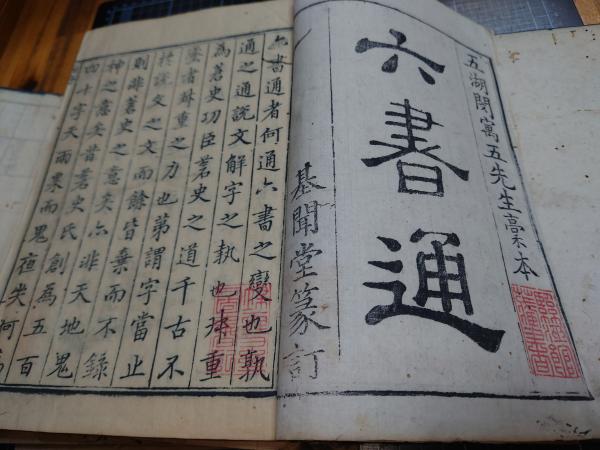 五湖閔寓五先生藁本
六書通
基聞堂篆訂
六書通者何通六書之變也執
通之通説文解字之執也疎重
為蒼史功臣蒼史之道千古不
墜書歸重之力也第謂字當止
於説文之文而餘皆棄而不錄
則非蒼史之意矣亦非天地鬼
神之意矣昔蒼史氏創為五百
四十字天雨粟而鬼夜哭何